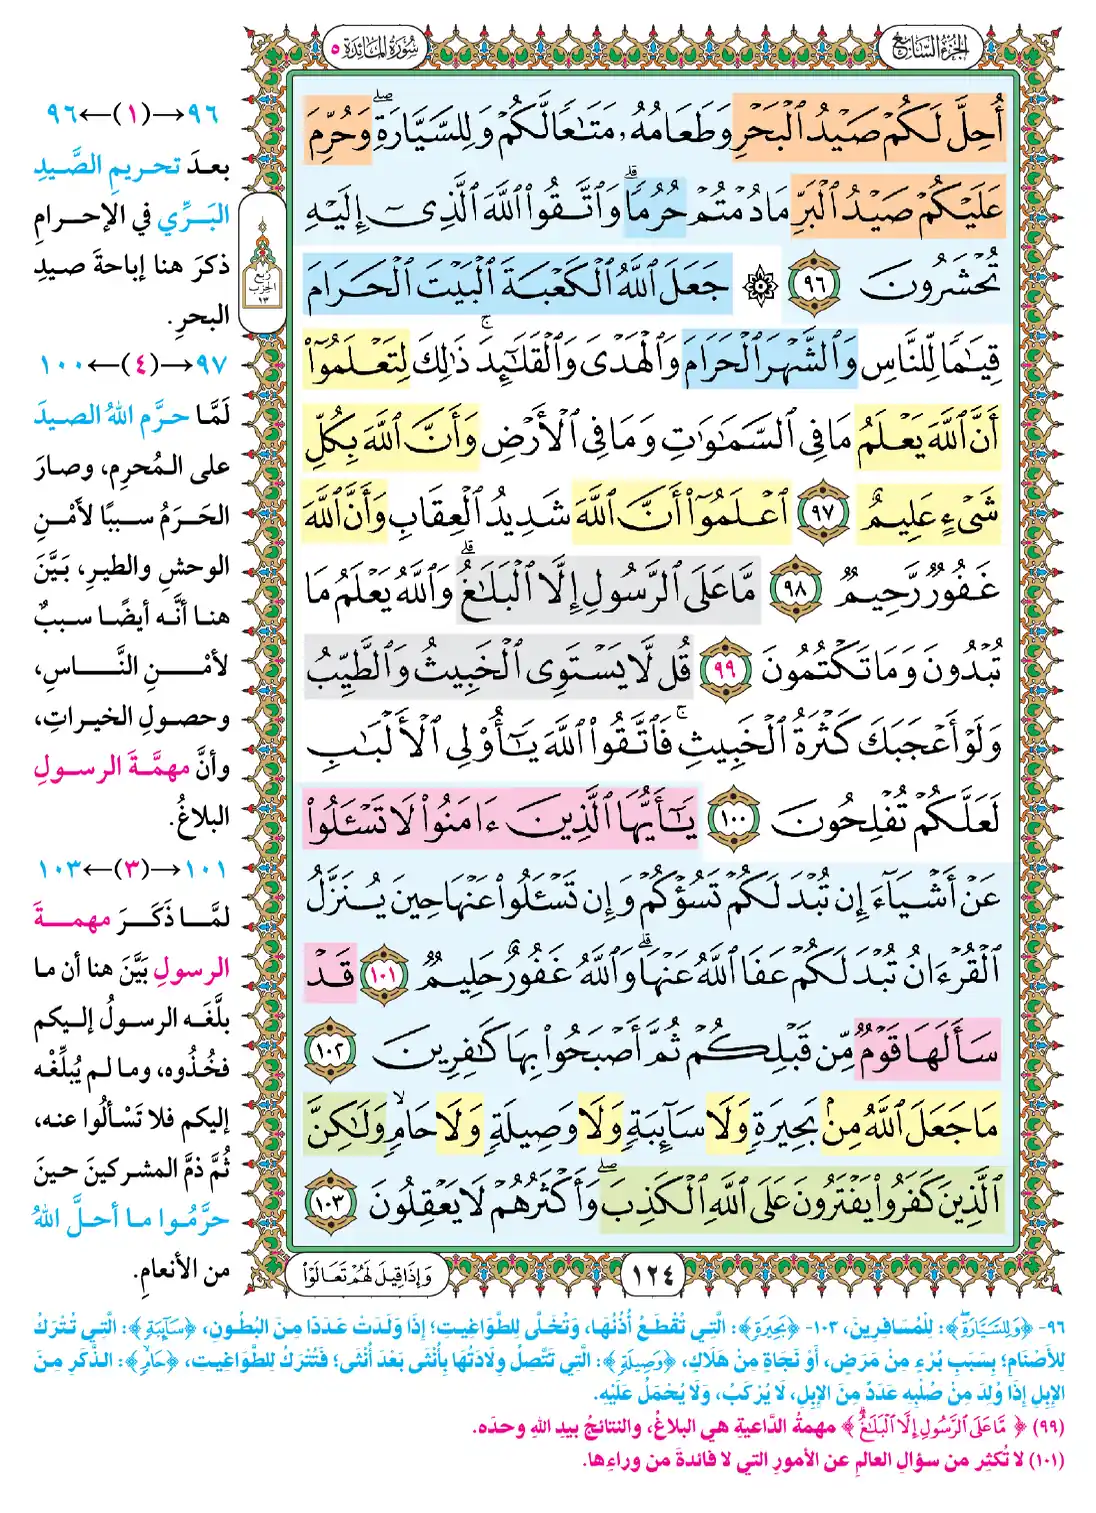 الجزء السابع
سورة المائدة ٥
أُحِلَّ لَكُمْ صَيْدُ ٱلْبَحْرِ وَطَعَامُهُۥ مَتَٰعًا لَّكُمْ وَلِلسَّيَّارَةِ ۖ وَحُرِّمَ
عَلَيْكُمْ صَيْدُ ٱلْبَرِّ مَا دُمْتُمْ حُرُمًا ۗ وَٱتَّقُوا۟ ٱللَّهَ ٱلَّذِىٓ إِلَيْهِ
تُحْشَرُونَ ٩٦ ۞ جَعَلَ ٱللَّهُ ٱلْكَعْبَةَ ٱلْبَيْتَ ٱلْحَرَامَ
قِيَٰمًا لِّلنَّاسِ وَٱلشَّهْرَ ٱلْحَرَامَ وَٱلْهَدْىَ وَٱلْقَلَٰٓئِدَ ۚ ذَٰلِكَ لِتَعْلَمُوٓا۟
أَنَّ ٱللَّهَ يَعْلَمُ مَا فِى ٱلسَّمَٰوَٰتِ وَمَا فِى ٱلْأَرْضِ وَأَنَّ ٱللَّهَ بِكُلِّ
شَىْءٍ عَلِيمٌ ٩٧ ٱعْلَمُوٓا۟ أَنَّ ٱللَّهَ شَدِيدُ ٱلْعِقَابِ وَأَنَّ ٱللَّهَ
غَفُورٌ رَّحِيمٌ ٩٨ مَّا عَلَى ٱلرَّسُولِ إِلَّا ٱلْبَلَٰغُ ۗ وَٱللَّهُ يَعْلَمُ مَا
تُبْدُونَ وَمَا تَكْتُمُونَ ٩٩ قُل لَّا يَسْتَوِى ٱلْخَبِيثُ وَٱلطَّيِّبُ
وَلَوْ أَعْجَبَكَ كَثْرَةُ ٱلْخَبِيثِ ۚ فَٱتَّقُوا۟ ٱللَّهَ يَٰٓأُو۟لِى ٱلْأَلْبَٰبِ
لَعَلَّكُمْ تُفْلِحُونَ ١٠٠ يَٰٓأَيُّهَا ٱلَّذِينَ ءَامَنُوا۟ لَا تَسْـَٔلُوا۟
عَنْ أَشْيَآءَ إِن تُبْدَ لَكُمْ تَسُؤْكُمْ وَإِن تَسْـَٔلُوا۟ عَنْهَا حِينَ يُنَزَّلُ
ٱلْقُرْءَانُ تُبْدَ لَكُمْ عَفَا ٱللَّهُ عَنْهَا ۗ وَٱللَّهُ غَفُورٌ حَلِيمٌ ١٠١ قَدْ
سَأَلَهَا قَوْمٌ مِّن قَبْلِكُمْ ثُمَّ أَصْبَحُوا۟ بِهَا كَٰفِرِينَ ١٠٢
مَا جَعَلَ ٱللَّهُ مِنۢ بَحِيرَةٍ وَلَا سَآئِبَةٍ وَلَا وَصِيلَةٍ وَلَا حَامٍ ۙ وَلَٰكِنَّ
ٱلَّذِينَ كَفَرُوا۟ يَفْتَرُونَ عَلَى ٱللَّهِ ٱلْكَذِبَ ۖ وَأَكْثَرُهُمْ لَا يَعْقِلُونَ ١٠٣
١٢٤
وَإِذَا قِيلَ لَهُمْ تَعَالَوْا۟
ربع
الحزب
١٣
٩٦→(١)←٩٦
بعدَ تحريمِ الصَّيدِ
البَرِّي في الإحرامِ
ذكرَ هنا إباحةَ صيدِ
البحرِ.
٩٧→(٤)←١٠٠
لَمَّا حرَّم اللهُ الصيدَ
على المُحرِمِ، وصارَ
الحَرَمُ سببًا لأَمْنِ
الوحشِ والطيرِ، بَيَّنَ
هنا أنَّه أيضًا سببٌ
لأمْنِ النَّاسِ،
وحصولِ الخيراتِ،
وأنَّ مهمَّةَ الرسولِ
البلاغُ.
١٠١→(٣)←١٠٣
لمَّا ذَكَرَ مهمةَ
الرسولِ بَيَّنَ هنا أن ما
بلَّغَه الرسولُ إليكم
فخُذُوه، وما لم يُبلِّغْه
إليكم فلا تَسْألُوا عنه،
ثُمَّ ذمَّ المشركينَ حينَ
حرَّمُوا ما أحلَّ اللهُ
من الأنعامِ.
٩٦- ﴿وَلِلسَّيَّارَةِ﴾: لِلْمُسَافِرِينَ، ١٠٣- ﴿بَحِيرَةٍ﴾: الَّتِي تُقْطَعُ أُذُنُهَا، وَتُخَلَّى لِلطَّوَاغِيتِ؛ إِذَا وَلَدَتْ عَدَدًا مِنَ البُطُونِ، ﴿سَآئِبَةٍ﴾: الَّتِي تُتْرَكُ
لِلأَصْنَامِ؛ بِسَبَبِ بُرْءٍ مِنْ مَرَضٍ، أَوْ نَجَاةٍ مِنْ هَلَاكٍ، ﴿وَصِيلَةٍ﴾: الَّتِي تَتَّصِلُ وِلَادَتُهَا بِأُنْثَى بَعْدَ أُنْثَى؛ فَتُتْرَكُ لِلطَّوَاغِيتِ، ﴿حَامٍ﴾: الذَّكَرِ مِنَ
الإِبِلِ إِذَا وُلِدَ مِنْ صُلْبِهِ عَدَدٌ مِنَ الإِبِلِ، لَا يُرْكَبُ، وَلَا يُحْمَلُ عَلَيْهِ.
(٩٩) ﴿مَّا عَلَى ٱلرَّسُولِ إِلَّا ٱلْبَلَٰغُ﴾ مهمةُ الدَّاعيةِ هي البلاغُ، والنتائجُ بيدِ اللهِ وحدَه.
(١٠١) لا تُكثِر من سؤالِ العالمِ عن الأمورِ التي لا فائدةَ من وراءِها.